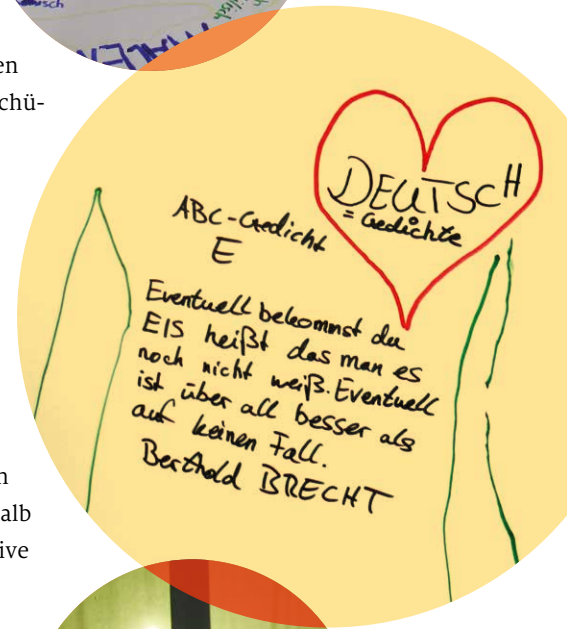 sch
isch
MALEN
en
chü-
DEUTSCH
= Gedichte
ABC-Gedicht
E
Eventuell bekommst du
EIS heißt das man es
noch nicht weiß. Eventuell
ist über all besser als
auf keinen Fall.
Berthold BRECHT
n
alb
ive